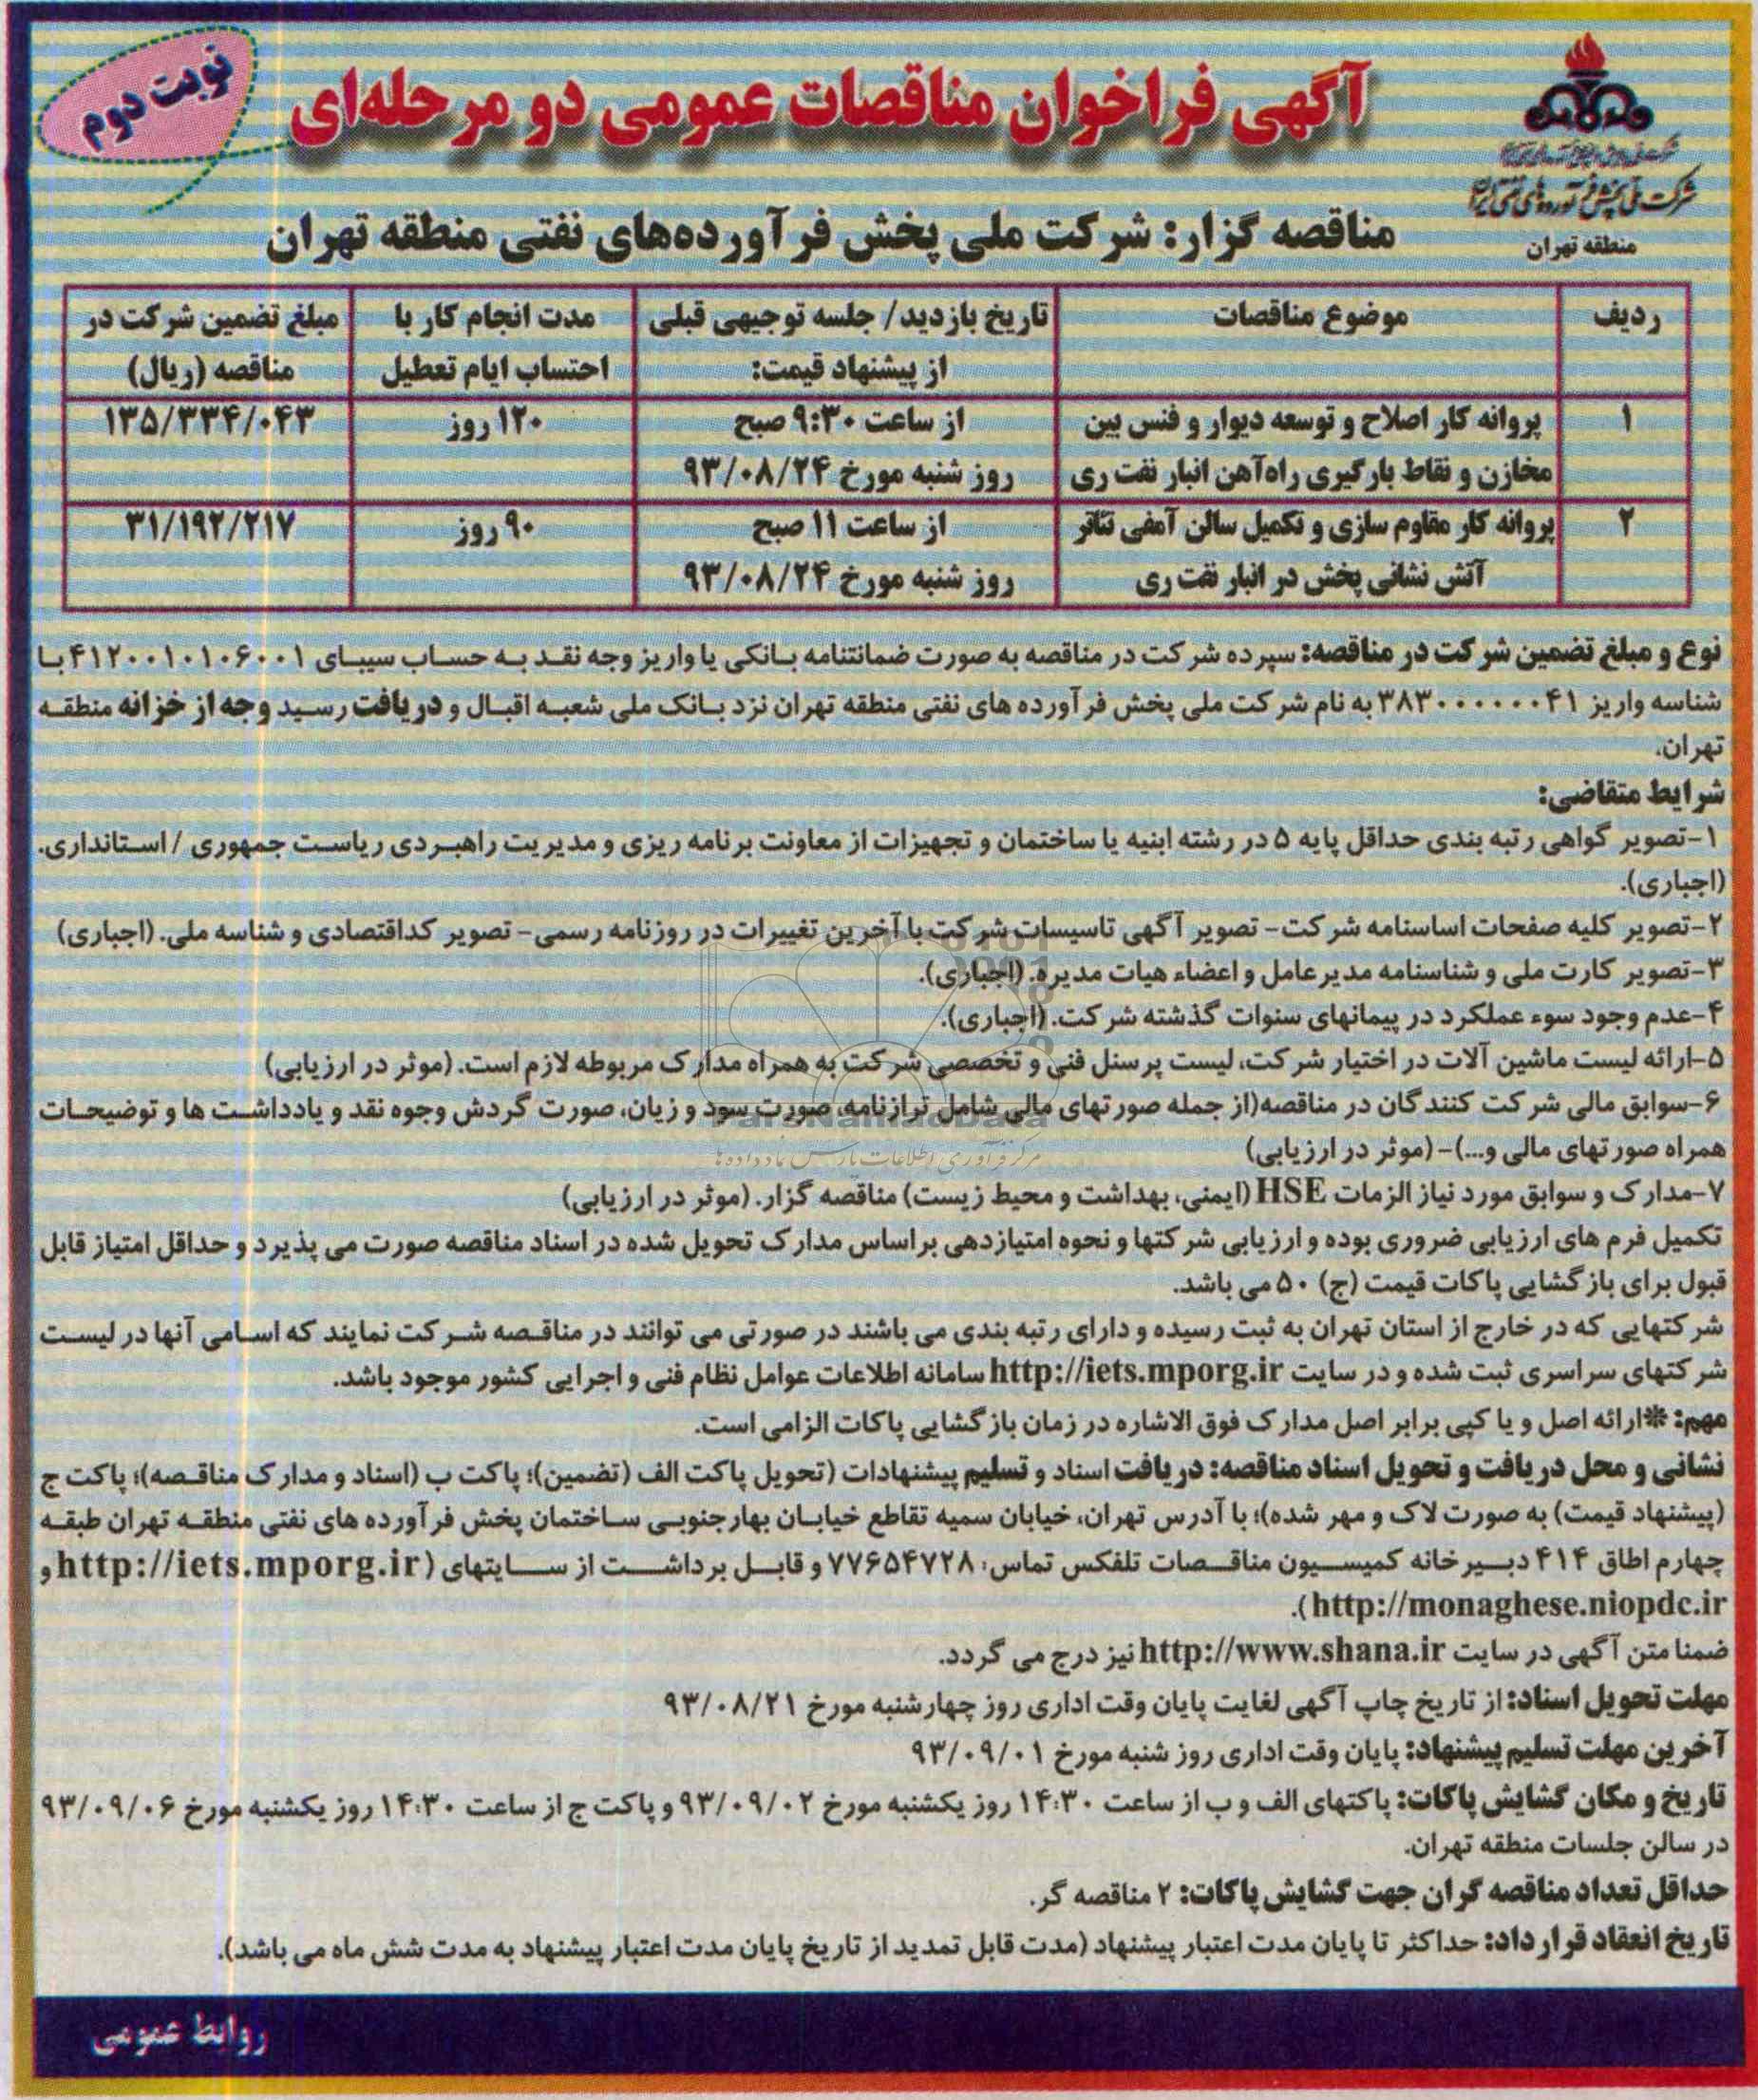 نوبت دوم
آگهی فراخوان مناقصات عمومی دو مرحله‌ای
شرکت ملی پخش فرآورده‌های نفتی ایران
منطقه تهران
مناقصه گزار: شرکت ملی پخش فرآورده‌های نفتی منطقه تهران
ردیف | موضوع مناقصات | تاریخ بازدید/ جلسه توجیهی قبلی از پیشنهاد قیمت: | مدت انجام کار با احتساب ایام تعطیل | مبلغ تضمین شرکت در مناقصه (ریال)
۱ | پروانه کار اصلاح و توسعه دیوار و فنس بین مخازن و نقاط بارگیری راه‌آهن انبار نفت ری | از ساعت ۹:۳۰ صبح روز شنبه مورخ ۹۳/۰۸/۲۴ | ۱۲۰ روز | ۱۳۵/۳۳۴/۰۴۳
۲ | پروانه کار مقاوم سازی و تکمیل سالن آمفی تئاتر آتش نشانی پخش در انبار نفت ری | از ساعت ۱۱ صبح روز شنبه مورخ ۹۳/۰۸/۲۴ | ۹۰ روز | ۳۱/۱۹۲/۲۱۷
نوع و مبلغ تضمین شرکت در مناقصه: سپرده شرکت در مناقصه به صورت ضمانتنامه بانکی یا واریز وجه نقد به حساب سیبای ۴۱۲۰۰۱۰۱۰۶۰۰۱ با
شناسه واریز ۳۸۳۰۰۰۰۰۰۰۴۱ به نام شرکت ملی پخش فرآورده های نفتی منطقه تهران نزد بانک ملی شعبه اقبال و دریافت رسید وجه از خزانه منطقه
تهران.
شرایط متقاضی:
۱-تصویر گواهی رتبه بندی حداقل پایه ۵ در رشته ابنیه یا ساختمان و تجهیزات از معاونت برنامه ریزی و مدیریت راهبردی ریاست جمهوری / استانداری.
(اجباری).
۲-تصویر کلیه صفحات اساسنامه شرکت- تصویر آگهی تاسیسات شرکت با آخرین تغییرات در روزنامه رسمی- تصویر کداقتصادی و شناسه ملی. (اجباری)
۳-تصویر کارت ملی و شناسنامه مدیرعامل و اعضاء هیات مدیره. (اجباری).
۴-عدم وجود سوء عملکرد در پیمانهای سنوات گذشته شرکت. (اجباری).
۵-ارائه لیست ماشین آلات در اختیار شرکت، لیست پرسنل فنی و تخصصی شرکت به همراه مدارک مربوطه لازم است. (موثر در ارزیابی)
۶-سوابق مالی شرکت کنندگان در مناقصه(از جمله صورتهای مالی شامل ترازنامه، صورت سود و زیان، صورت گردش وجوه نقد و یادداشت ها و توضیحات
همراه صورتهای مالی و...)- (موثر در ارزیابی)
۷-مدارک و سوابق مورد نیاز الزمات HSE (ایمنی، بهداشت و محیط زیست) مناقصه گزار. (موثر در ارزیابی)
تکمیل فرم های ارزیابی ضروری بوده و ارزیابی شرکتها و نحوه امتیازدهی براساس مدارک تحویل شده در اسناد مناقصه صورت می پذیرد و حداقل امتیاز قابل
قبول برای بازگشایی پاکات قیمت (ج) ۵۰ می باشد.
شرکتهایی که در خارج از استان تهران به ثبت رسیده و دارای رتبه بندی می باشند در صورتی می توانند در مناقصه شرکت نمایند که اسامی آنها در لیست
شرکتهای سراسری ثبت شده و در سایت http://iets.mporg.ir سامانه اطلاعات عوامل نظام فنی و اجرایی کشور موجود باشد.
مهم: *ارائه اصل و یا کپی برابر اصل مدارک فوق الاشاره در زمان بازگشایی پاکات الزامی است.
نشانی و محل دریافت و تحویل اسناد مناقصه: دریافت اسناد و تسلیم پیشنهادات (تحویل پاکت الف (تضمین)؛ پاکت ب (اسناد و مدارک مناقصه)؛ پاکت ج
(پیشنهاد قیمت) به صورت لاک و مهر شده)؛ با آدرس تهران، خیابان سمیه تقاطع خیابان بهارجنوبی ساختمان پخش فرآورده های نفتی منطقه تهران طبقه
چهارم اطاق ۴۱۴ دبیرخانه کمیسیون مناقصات تلفکس تماس: ۷۷۶۵۴۷۲۸ و قابل برداشت از سایتهای (http://iets.mporg.ir و
http://monaghese.niopdc.ir).
ضمنا متن آگهی در سایت http://www.shana.ir نیز درج می گردد.
مهلت تحویل اسناد: از تاریخ چاپ آگهی لغایت پایان وقت اداری روز چهارشنبه مورخ ۹۳/۰۸/۲۱
آخرین مهلت تسلیم پیشنهاد: پایان وقت اداری روز شنبه مورخ ۹۳/۰۹/۰۱
تاریخ و مکان گشایش پاکات: پاکتهای الف و ب از ساعت ۱۴:۳۰ روز یکشنبه مورخ ۹۳/۰۹/۰۲ و پاکت ج از ساعت ۱۴:۳۰ روز یکشنبه مورخ ۹۳/۰۹/۰۶
در سالن جلسات منطقه تهران.
حداقل تعداد مناقصه گران جهت گشایش پاکات: ۲ مناقصه گر.
تاریخ انعقاد قرارداد: حداکثر تا پایان مدت اعتبار پیشنهاد (مدت قابل تمدید از تاریخ پایان مدت اعتبار پیشنهاد به مدت شش ماه می باشد).
روابط عمومی